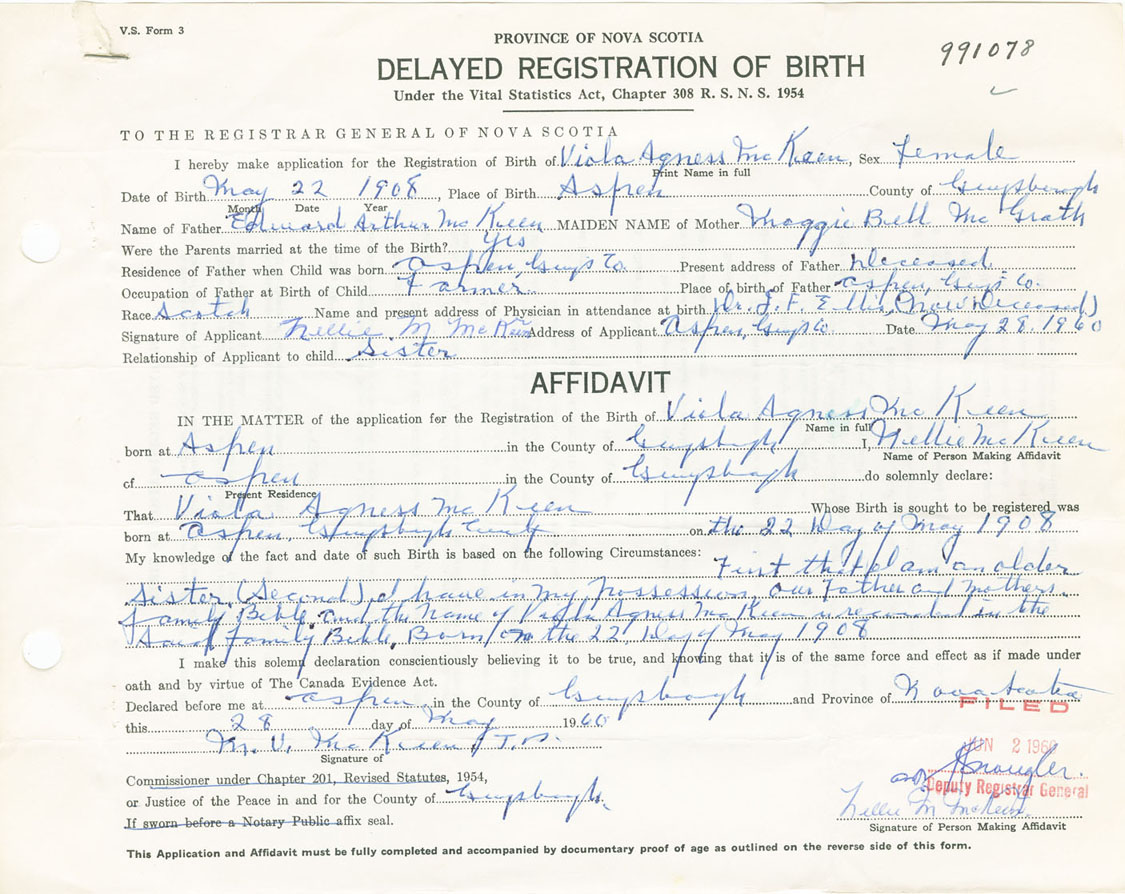 V.S. Form 3
PROVINCE OF NOVA SCOTIA
991078
DELAYED REGISTRATION OF BIRTH
Under the Vital Statistics Act, Chapter 308 R. S. N. S. 1954
TO THE REGISTRAR GENERAL OF NOVA SCOTIA
I hereby make application for the Registration of Birth of Viola Agness McKeen, Sex Female
Print Name in full
Date of Birth May 22 1908, Place of Birth Aspen County of Guysborough
Month Date Year
Name of Father Edward Arthur McKeen MAIDEN NAME of Mother Maggie Bell McGrath
Were the Parents married at the time of the Birth? Yes
Residence of Father when Child was born Aspen, Guys Co. Present address of Father Deceased
Occupation of Father at Birth of Child Farmer Place of birth of Father Aspen, Guys Co.
Race Scotch Name and present address of Physician in attendance at birth Dr. J. F. Ellis (Now Deceased)
Signature of Applicant Nellie M. McKeen Address of Applicant Aspen, Guys Co. Date May 28, 1960
Relationship of Applicant to child Sister
AFFIDAVIT
IN THE MATTER of the application for the Registration of the Birth of Viola Agness McKeen
Name in full
born at Aspen in the County of Guysbogh I, Nellie McKeen
Name of Person Making Affidavit
of Aspen in the County of Guysbogh do solemnly declare:
Present Residence
That Viola Agness McKeen Whose Birth is sought to be registered was
born at Aspen, Guysbogh County on the 22 Day of May 1908
My knowledge of the fact and date of such Birth is based on the following Circumstances:
First that I am an older
Sister (Second) I have in my possession, our Father and Mothers
family Bible and the name of Viola Agness McKeen is recorded in the
family Bible, Born, on the 22, Day of May 1908
I make this solemn declaration conscientiously believing it to be true, and knowing that it is of the same force and effect as if made under
oath and by virtue of The Canada Evidence Act.
Declared before me at Aspen in the County of Guysborough and Province of Nova Scotia
FILED
this 28 day of May 1960
M. V. McKeen J.P.
Signature of
JUN 2 1960
Commissioner under Chapter 201, Revised Statutes, 1954,
Deputy Registrar General
or Justice of the Peace in and for the County of Guysbogh
Nellie M. McKeen
If sworn before a Notary Public affix seal.
Signature of Person Making Affidavit
This Application and Affidavit must be fully completed and accompanied by documentary proof of age as outlined on the reverse side of this form.